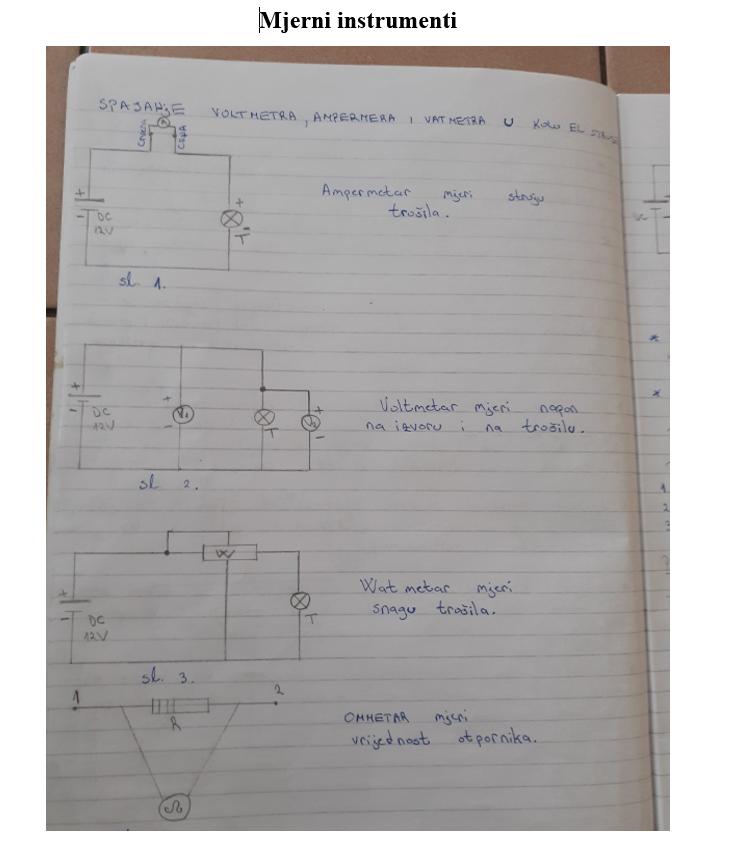 Mjerni instrumenti
SPAJANJE VOLTMETRA, AMPERMERA I VATMETRA U KOLO EL STRUJE
A
CRVENA
CRNA
+
-
DC
12V
+
-
T
Ampermetar mjeri struju
trošila.
sl. 1.
+
-
DC
12V
+
V1
-
T
+
V2
-
Voltmetar mjeri napon
na izvoru i na trošilu.
sl 2.
W
+
-
DC
12V
T
Wat metar mjeri
snagu trošila.
sl. 3.
1
2
R
OMMETAR mjeri
vrijednost otpornika.
Ω
*
*
1
2
3